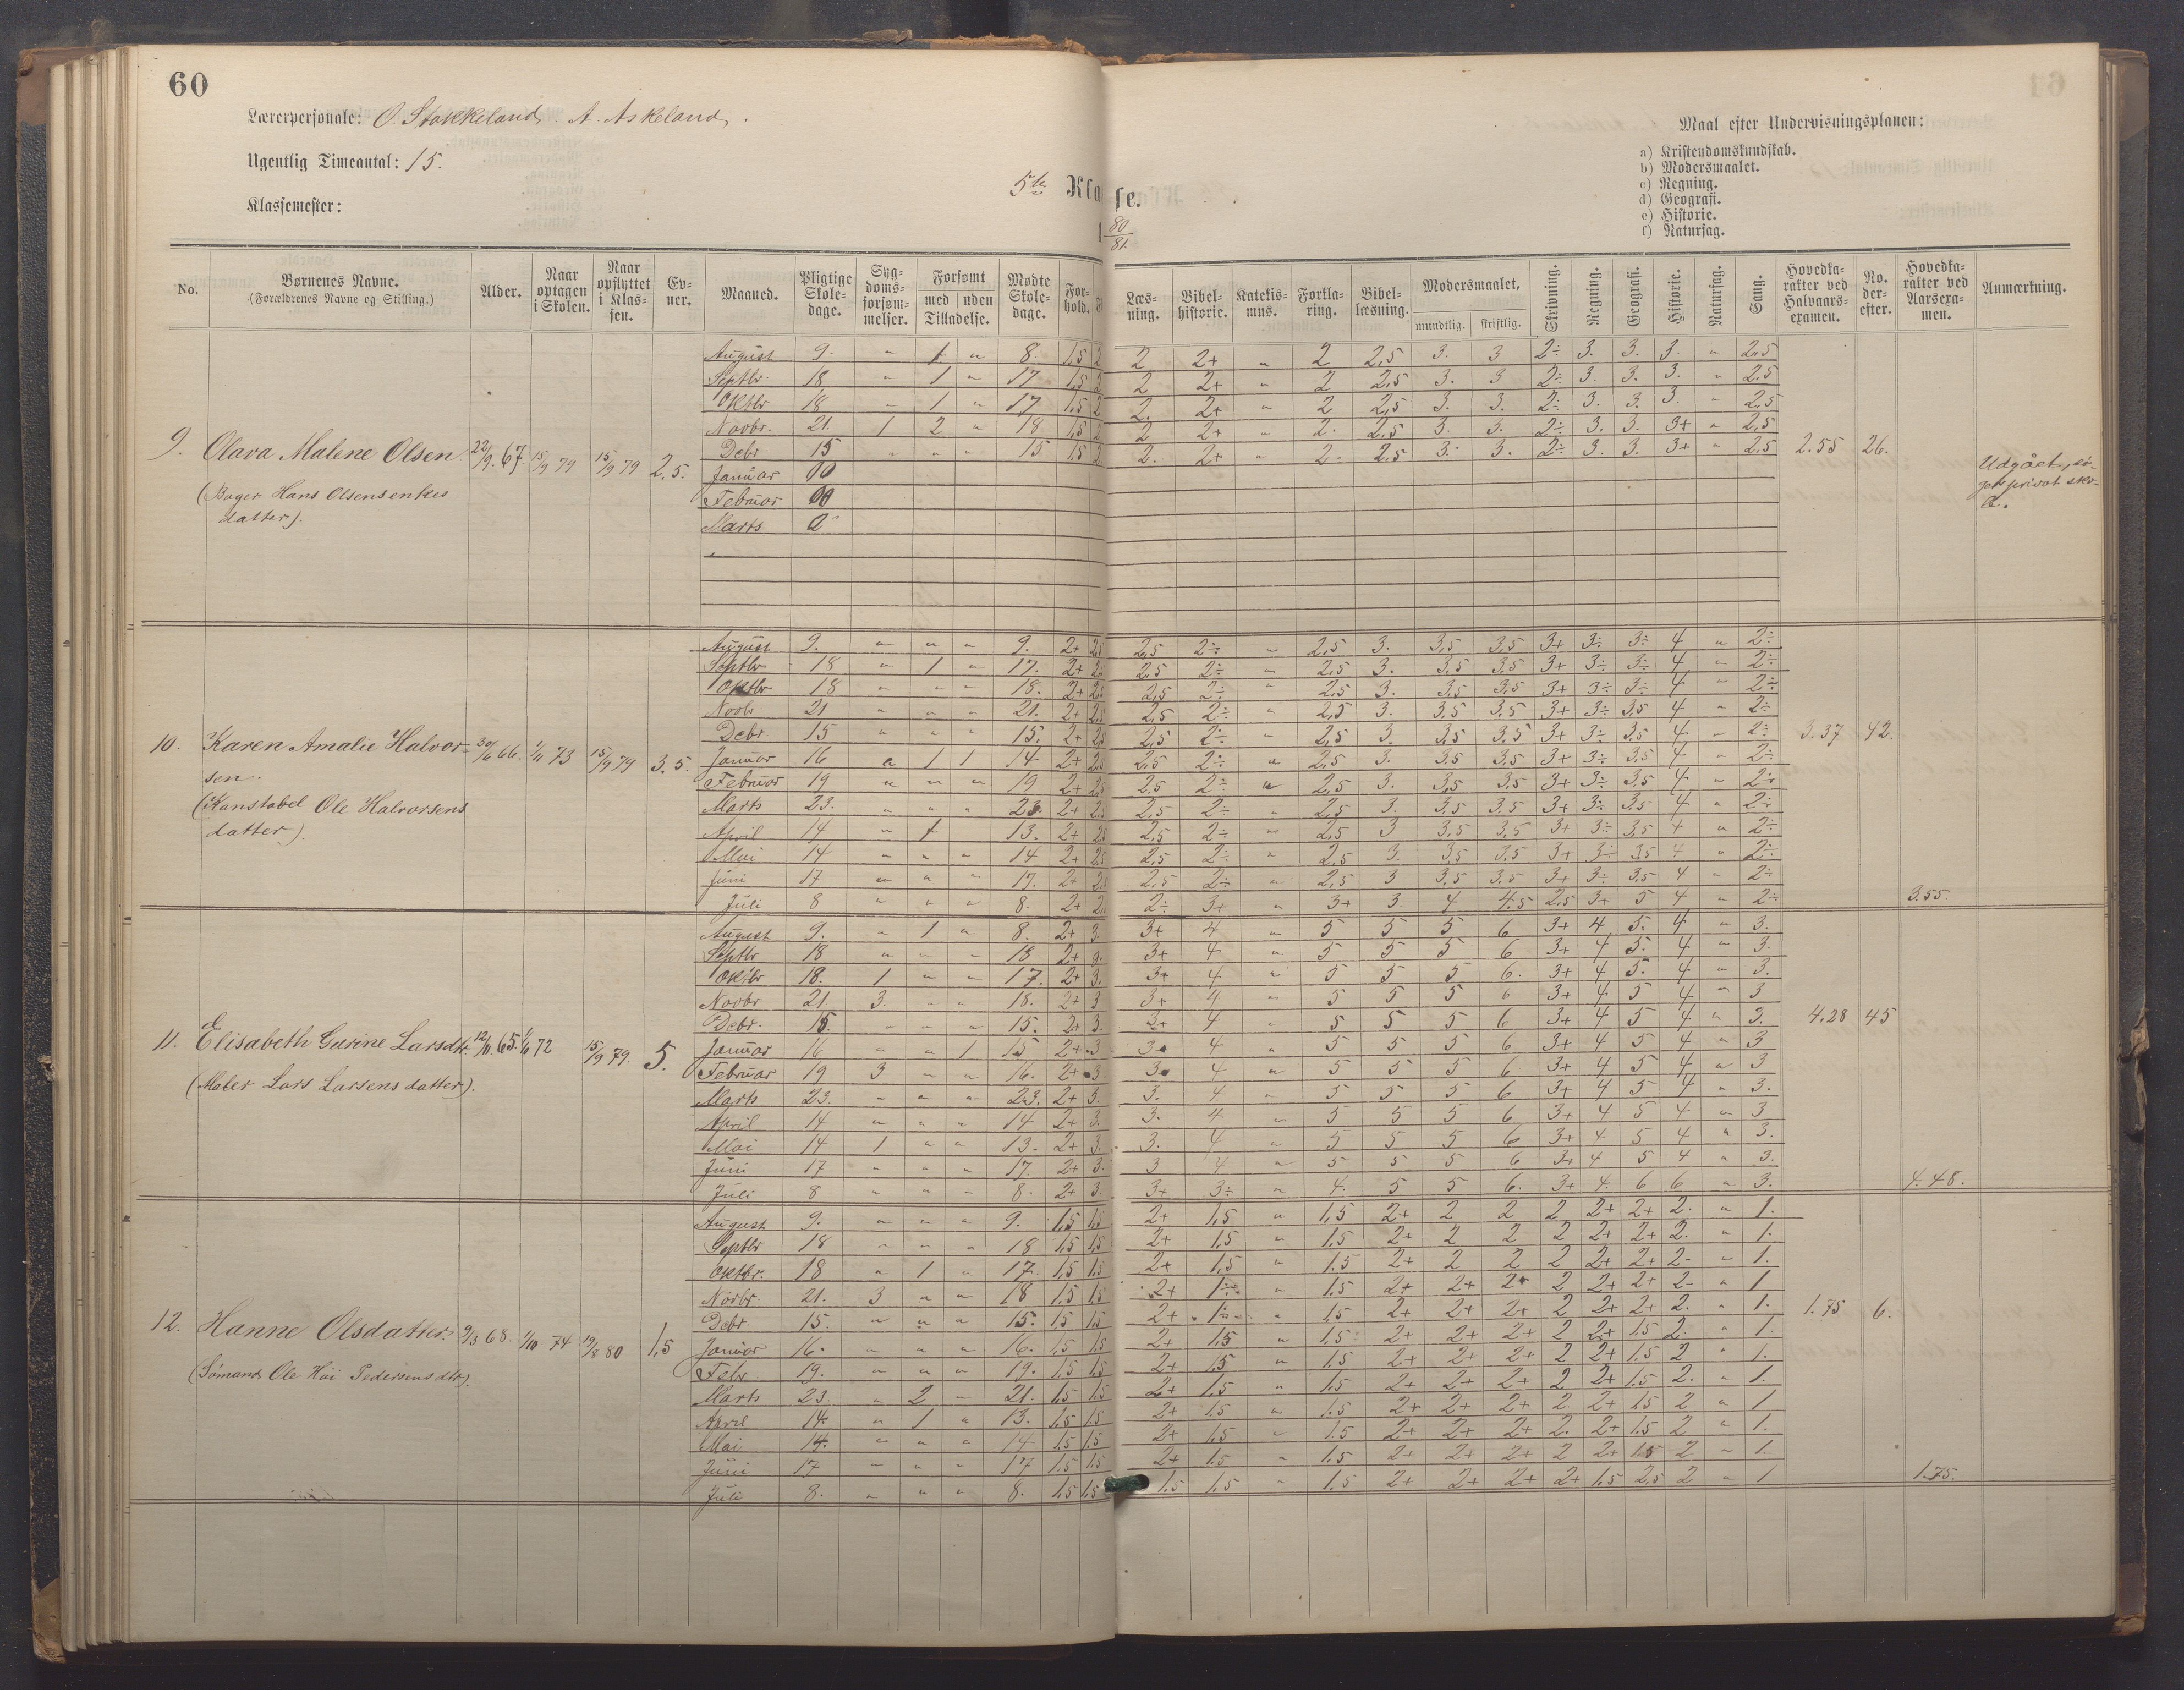 60
Lærerpersonale: O. Stokkeland. A. Askeland.
Ugentlig Timeantal: 15.
Klassemester:
5te Klasse.
80/81.
Maal efter Undervisningsplanen:
a) Kristendomskundskab.
b) Modersmaalet.
c) Regning.
d) Geografi.
e) Historie.
f) Naturfag.
No. Børnenes Navne. (Forældrenes Navne og Stilling.) Alder. Naar optagen i Skolen. Naar opflyttet i Klassen. Evner. Maaned. Pligtige Skoledage. Sygdomsforsømmelser. Forsømt med uden Tilladelse. Mødte Skoledage. Forhold. Læsning. Bibelhistorie. Katekismus. Forklaring. Bibellæsning. Modersmaalet, mundtlig. skriftlig. Skrivning. Regning. Geografi. Historie. Naturfag. Sang. Hovedkarakter ved Halvaarsexamen. No. derefter. Hovedkarakter ved Aarsexamen. Anmærkning.
August 9. " 1 " 8 1,5 2 2 2+ " 2 2,5 3. 3 2÷ 3. 3. 3. " 2,5
Septbr. 18 " 1 " 17 1,5 2 2 2+ " 2 2,5 3. 3 2÷ 3. 3. 3. " 2,5
Oktbr 18 " 1 " 17 1,5 2 2. 2+ " 2 2,5 3. 3. 2÷ 3. 3. 3. " 2,5
Novbr. 21. 1 2 " 18 1,5 2 2 2+ " 2. 2,5 3. 3. 2÷ 3. 3. 3+ " 2,5
9. Olava Malene Olsen 22/9. 67. 15/9 79 15/9 79 2,5. Debr 15 " " " 15 1,5 2 2. 2+ " 2. 2,5 3. 3. 2÷ 3. 3. 3+ " 2,5 2.55 26.
(Bager Hans Olsens enkes
datter).
Januar
Februar
Marts
Udgået, sø-
ger privat sko-
le.
August 9. " " " 9. 2+ 2,5 2,5 2÷ " 2,5 3. 3,5 3,5 3+ 3÷ 3÷ 4 " 2÷
Septbr 18 " 1 " 17. 2+ 2,5 2,5 2÷ " 2,5 3. 3,5 3,5 3+ 3÷ 3÷ 4 " 2÷
Oktbr 18 " " " 18. 2+ 2,5 2,5 2÷ " 2,5 3. 3,5 3,5 3+ 3÷ 3÷ 4 " 2÷
Novbr 21 " " " 21. 2+ 2,5 2,5 2÷ " 2,5 3. 3,5 3,5 3+ 3÷ 3,5 4 " 2÷
Debr 15 " " " 15. 2+ 2,5 2,5 2÷ " 2,5 3. 3,5 3,5 3+ 3÷ 3,5 4 " 2÷ 3.37 42.
10. Karen Amalie Halvor-
sen.
(Konstabel Ole Halvorsens
datter).
30/6 66. 1/11 73 15/9 79 3,5.
Januar 16 " 1 1 14 2+ 2,5 2,5 2÷ " 2,5 3. 3,5 3,5 3+ 3÷ 3,5 4 " 2÷
Februar 19 " " " 19 2+ 2,5 2,5 2÷ " 2,5 3. 3,5 3,5 3+ 3÷ 3,5 4 " 2÷
Marts 23. " " " 23 2+ 2,5 2,5 2÷ " 2,5 3 3,5 3,5 3+ 3÷ 3,5 4 " 2÷
April 14 " 1 13. 2+ 2,5 2,5 2÷ " 2,5 3 3,5 3,5 3+ 3÷ 3,5 4 " 2÷
Mai 14 " " " 14 2+ 2,5 2,5 2÷ " 2,5 3. 3,5 3,5 3+ 3÷ 3,5 4 " 2÷
Juni 17 " " " 17. 2+ 2,5 2,5 2÷ " 2,5 3 3,5 3,5 3+ 3÷ 3,5 4 " 2÷
Juli 8 " " " 8. 2+ 2,5 2÷ 3+ " 3+ 3. 4 4.5 2,5 3+ 5 4 " 2÷ 3.55.
August 9. " 1 " 8. 2+ 3. 3+ 4 " 5 5 5 6 3+ 4 5. 4 " 3.
Septbr 18 " " " 18 2+ 3. 3+ 4 " 5 5 5 6 3+ 4 5. 4 " 3.
Oktbr 18. 1 " " 17. 2+ 3. 3+ 4 " 5 5 5 6. 3+ 4 5. 4 " 3.
Novbr 21. 3. " " 18. 2+ 3 3+ 4 " 5 5 5 6 3+ 4 5 4 " 3
Debr. 15. " " " 15. 2+ 3. 3+ 4 " 5 5 5 6 3+ 4 5 4 " 3. 4.28 45
11. Elisabeth Gurine Larsdtr. 12/11. 65. 1/6 72 15/9 79. 5.
(Maler Lars Larsens datter).
Januar 16 " " 1 15 2+ 3 3 4 " 5 5 5 6 3+ 4 5 4 " 3
Februar 19 3 " " 16. 2+ 3. 3 4 " 5 5 5 6 3+ 4 5 4 " 3
Marts 23. " " " 23. 2+ 3. 3. 4 " 5 5 5 6 3+ 4 5 4 " 3.
April 14 " " " 14 2+ 3. 3. 4 " 5 5 5 6 3+ 4 5 4 " 3
Mai 14 1 " " 13. 2+ 3. 3. 4 " 5 5 5 6 3+ 4 5 4 " 3.
Juni 17 " " " 17. 2+ 3. 3 4 " 5 5 5 6 3+ 4 5 4 " 3.
Juli 8 " " " 8. 2+ 3. 3+ 3÷ " 4. 5 5 6. 3+ 4. 6 6 " 3. 4.48.
August 9. " " " 9. 1,5 1,5 2+ 1,5 " 1,5 2+ 2 2 2 2+ 2+ 2. " 1.
Septbr 18 " " " 18 1,5 1,5 2+ 1,5 " 1,5 2+ 2 2 2 2+ 2+ 2. " 1.
Oktbr. 18 " 1 " 17. 1,5 1,5 2+ 1,5 " 1.5 2+ 2 2 2 2+ 2+ 2 " 1.
Novbr. 21. 3 " " 18 1.5 1.5 2+ 1÷ " 1.5 2+ 2+ 2+ 2 2+ 2+ 2 " 1
Debr. 15. " " " 15. 1.5 1.5 2+ 1÷ " 1,5 2+ 2+ 2+ 2 2+ 2+ 2. " 1. 1.75 6.
12. Hanne Olsdatter. 9/3 68. 1/10 74 19/8 80 1,5
(Sømand Ole Hoi Pedersens dtr).
Januar 16. " " " 16. 1,5 1,5 2+ 1.5 " 1.5 2+ 2+ 2+ 2 2+ 1.5 2. " 1.
Febr. 19. " " " 19. 1.5 1.5 2+ 1,5 " 1.5 2+ 2+ 2+ 2 2+ 1.5 2 " 1.
Marts 23. " 2 " 21. 1.5 1.5 2+ 1,5 " 1.5 2+ 2+ 2+ 2 2+ 1.5 2. " 1.
April 14. " 1 " 13. 1.5 1.5 2+ 1.5 " 1.5 2+ 2+ 2+ 2. 2+ 1.5 2 " 1
Mai 14. " " " 14 1.5 1.5 2+ 1.5 " 1.5 2+ 2+ 2+ 2. 2+ 1.5 2 " 1.
Juni 17 " " " 17 1.5 1.5 2+ 1.5 " 1.5 2+ 2+ 2+ 2 2+ 1.5 2 " 1.
Juli 8. " " " 8. 1.5 1.5 1.5 1,5 " 1,5 2+ 2+ 2+ 2+ 1.5 2,5 2 " 1 1.75.